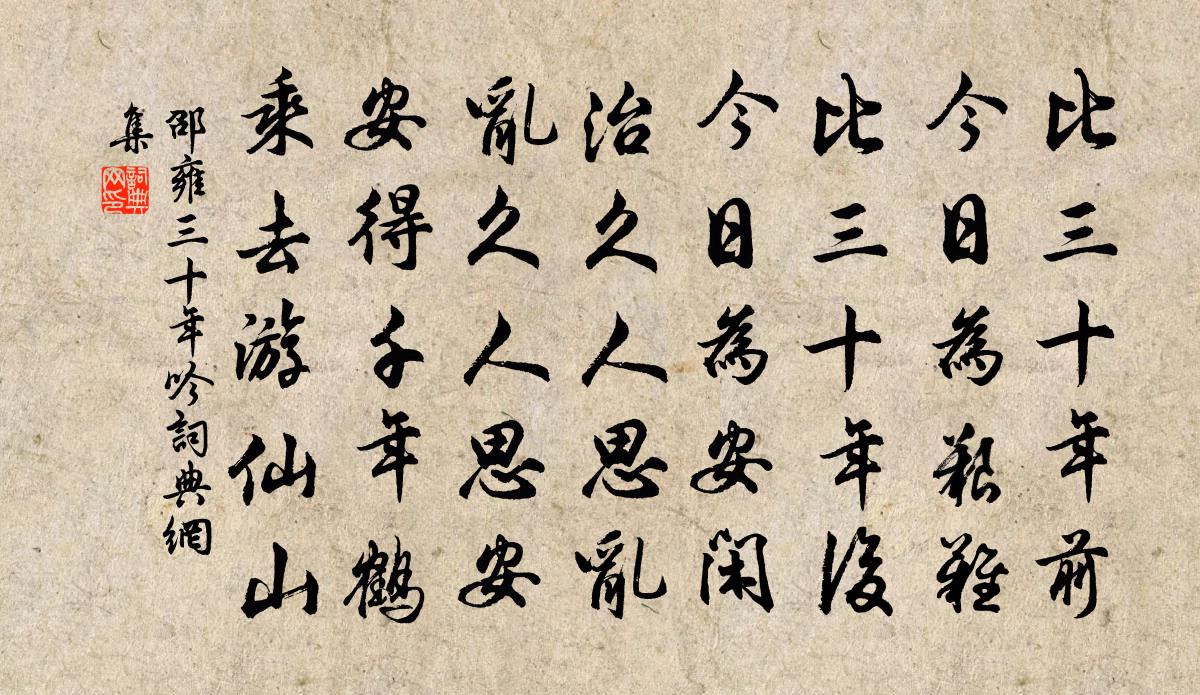 比三十年前
今日為艱難
比三十年後
今日為安閑
治久人思亂
亂久人思安
安得千年鶴
乘去游仙山
邵雍三十年吟詞典網
集
詞典網印